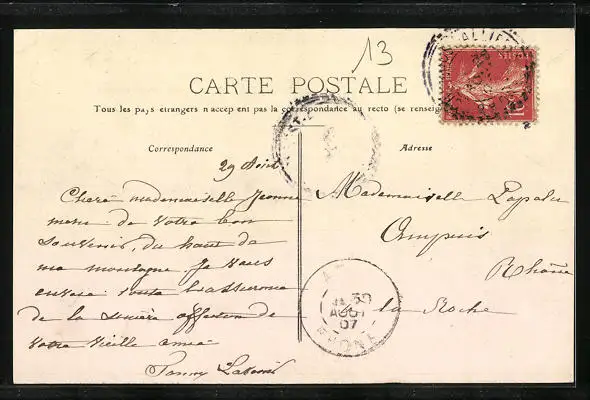 13
ALLIE
CARTE POSTALE
POSTES
10
Tous les pays étrangers n'acceptent pas la correspondance au recto (se renseign
Correspondance
Adresse
29 Août
Chère mademoiselle Jeanne
merci de votre bon
souvenir, du haut de
ma montagne, je vous
envoie toute l'assurance
de la sincère affection de
votre vieille amie
Fanny
Mademoiselle
Ampuis
Rhône
la Roche
30
AOUT
07
RHONE